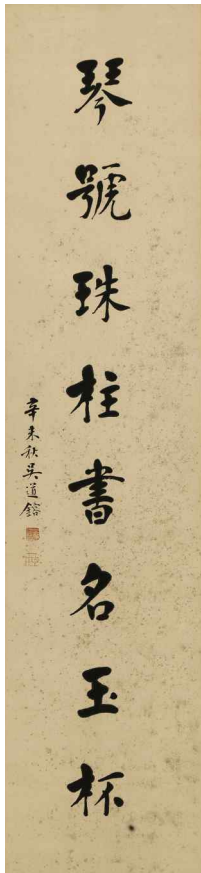 琴號珠柱書名玉杯
辛未秋吳道鎔